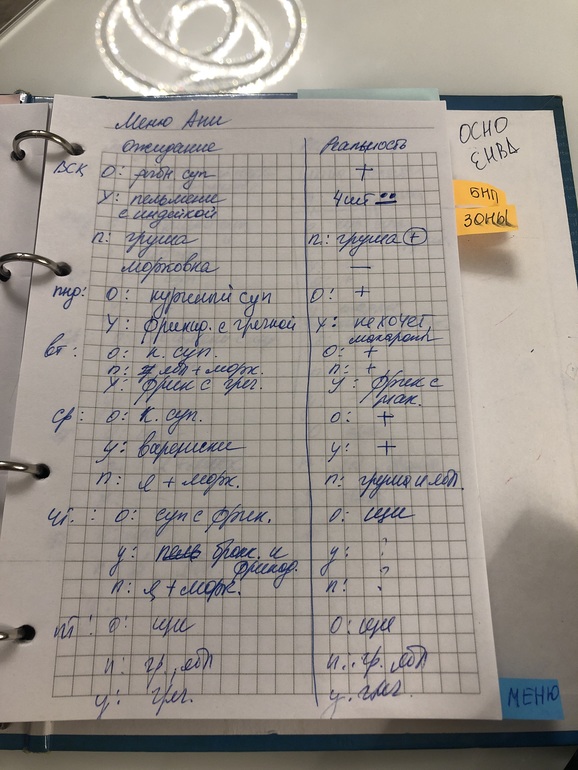 Меню Ани
Ожидание Реальность
ВСК О: рыбн суп +
У: пельмени 4 шт
с индейкой
П: груша П: груша +
морковка —
пнд: О: куриный суп О: +
У: фрикад. с гречкой У: не хочет
макароны
вт: О: к. суп. О: +
П: ябл + морк. П: +
У: фрик с греч. У: фрик с
мак.
ср: О: К. суп. О: +
У: вареники У: +
П: я + морк. П: груша и ябл.
чт: О: суп с фрик. О: щи
У: брокк. и У: ?
фрикад.
П: я + морк. П: ?
пт: О: щи О: щи
П: гр., ябл П: гр. ябл
У: греч. У: греч.
ОСНО
ЕНВД
БНП
ЗОНЫ
МЕНЮ